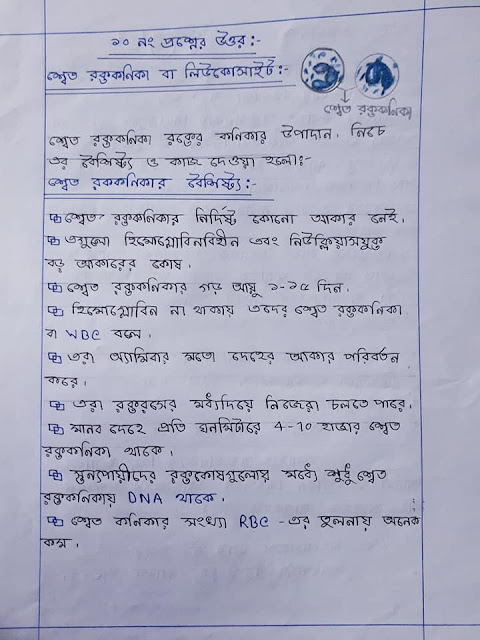 ১০ নং প্রশ্নের উত্তর:-
শ্বেত রক্তকনিকা বা লিউকোসাইট:-
শ্বেত রক্তকনিকা
শ্বেত রক্তকনিকা রক্তের কনিকার উপাদান। নিচে
এর বৈশিষ্ট্য ও কাজ দেওয়া হলো:-
শ্বেত রককনিকার বৈশিষ্ট্য:-
শ্বেত রক্তকনিকার নির্দিষ্ট কোনো আকার নেই।
এগুলো হিমোগ্লোবিনবিহীন এবং নিউক্লিয়াসযুক্ত
বড় আকারের কোষ।
শ্বেত রক্তকনিকার গড় আয়ু ১-১৫ দিন।
হিমোগ্লোবিন না থাকায় এদের শ্বেত রক্তকনিকা
বা WBC বলে।
এরা অ্যামিবার মতো দেহের আকার পরিবর্তন
করে।
এরা রক্তরসের মধ্যদিয়ে নিজেরা চলতে পারে।
মানব দেহে প্রতি ঘনমিটারে 4-10 হাজার শ্বেত
রক্তকনিকা থাকে।
স্তন্যপায়ীদের রক্তকোষগুলোর মধ্যে শুধু শ্বেত
রক্তকনিকায় DNA থাকে।
শ্বেত কনিকার সংখ্যা RBC -এর তুলনায় অনেক
কম।